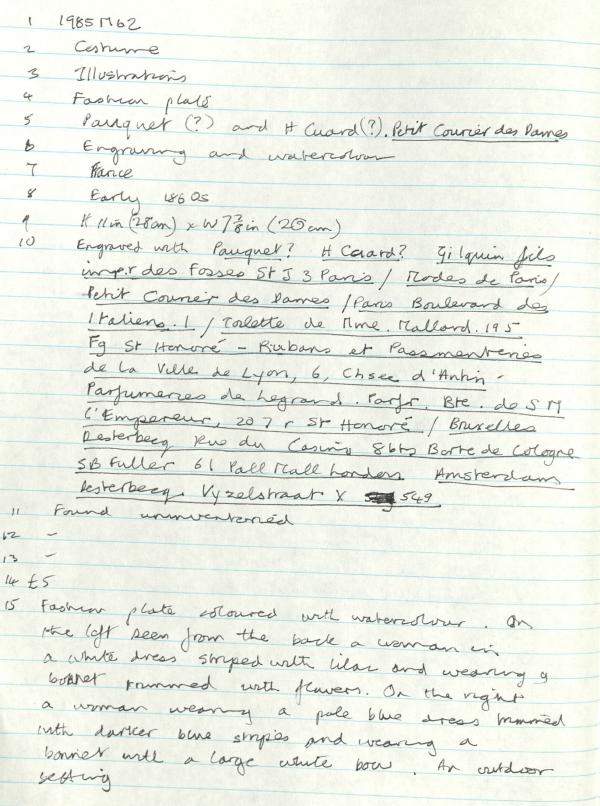 1 1985 M62
2 Costume
3 Illustrations
4 Fashion plate
5 Pauquet (?) and H Cuard (?). Petit Courier des Dames
6 Engraving and watercolour
7 France
8 Early 1860s
9 H 11in (28cm) x W 7⅞in (20cm)
10 Engraved with Pauquet? H Cuard? Gilquin fils
imp.r des Fosses St J 3 Paris / Modes de Paris/
Petit Courier des Dames / Paris Boulevard des
Italiens. 1 / Toilette de Mme. Mallard. 195
Fg St Honoré - Rubans et Passmenteries
de la Ville de Lyon, 6, Chsee d'Antin -
Parfumeries de Legrand. Parfr. Bte. de S M
L'Empereur, 207 r St Honoré / Bruxelles
Desterbecq Rue du Casino 8bts Borte de Cologne
SB Fuller 61 Pall Mall London Amsterdam
Desterbecq. Vyzelstraat X 549
11 Found uninventoried
12 -
13 -
14 £5
15 Fashion plate coloured with watercolour. On
the left seen from the back a woman in
a white dress striped with lilac and wearing a
bonnet trimmed with flowers. On the right
a woman wearing a pale blue dress trimmed
with darker blue stripes and wearing a
bonnet with a large white bow. An outdoor
setting